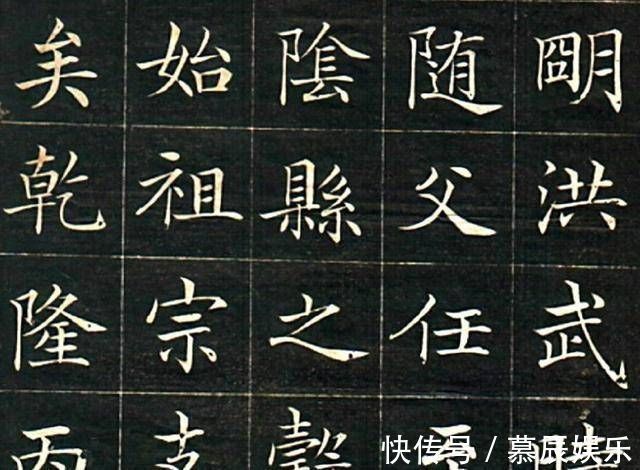 朙洪武
随父任
陰縣之
始祖宗支
矣乾隆丙
快传号 / 慕辰娱乐